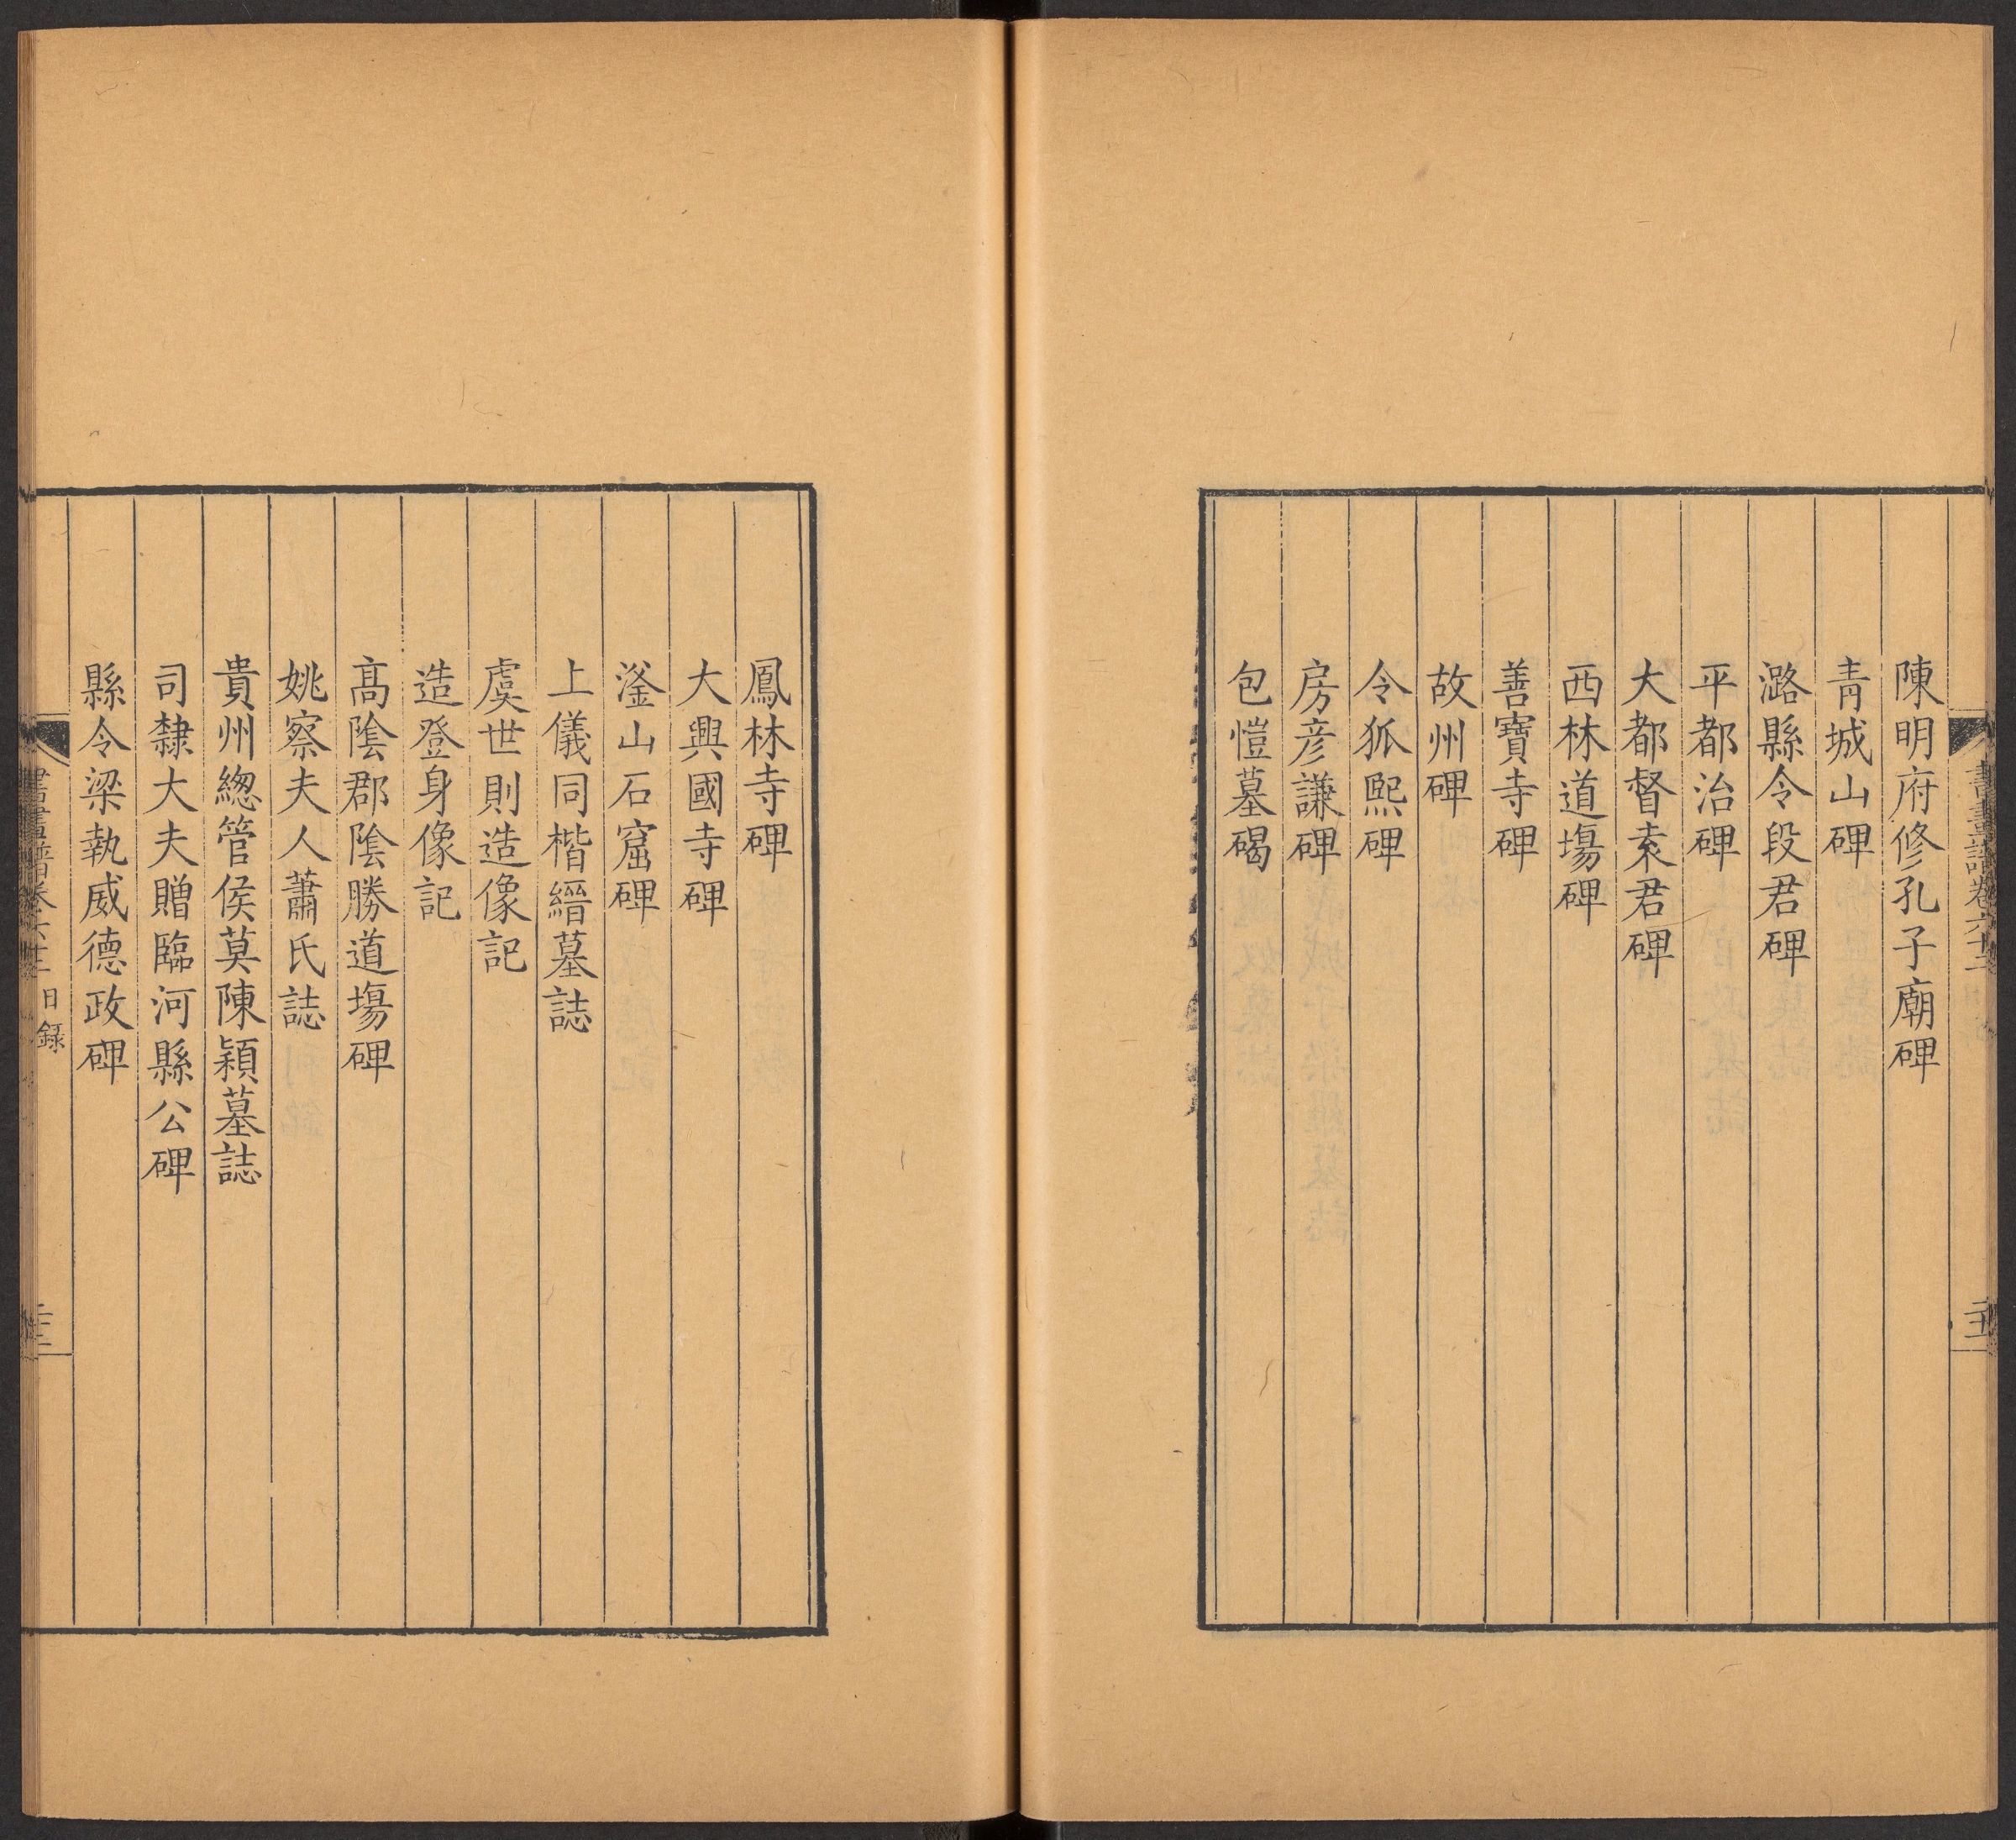 陳明府修孔子廟碑
青城山碑
潞縣令段君碑
平都治碑
大都督袁君碑
西林道塲碑
善寶寺碑
故州碑
令狐熙碑
房彦謙碑
包愷墓碣
鳳林寺碑
大興國寺碑
滏山石窟碑
上儀同楷縉墓誌
虞世則造像記
造登身像記
高隂郡隂勝道塲碑
姚察夫人蕭氏誌
貴州緫管侯莫陳頴墓誌
司隸大夫贈臨河縣公碑
縣令梁執威德政碑
目錄